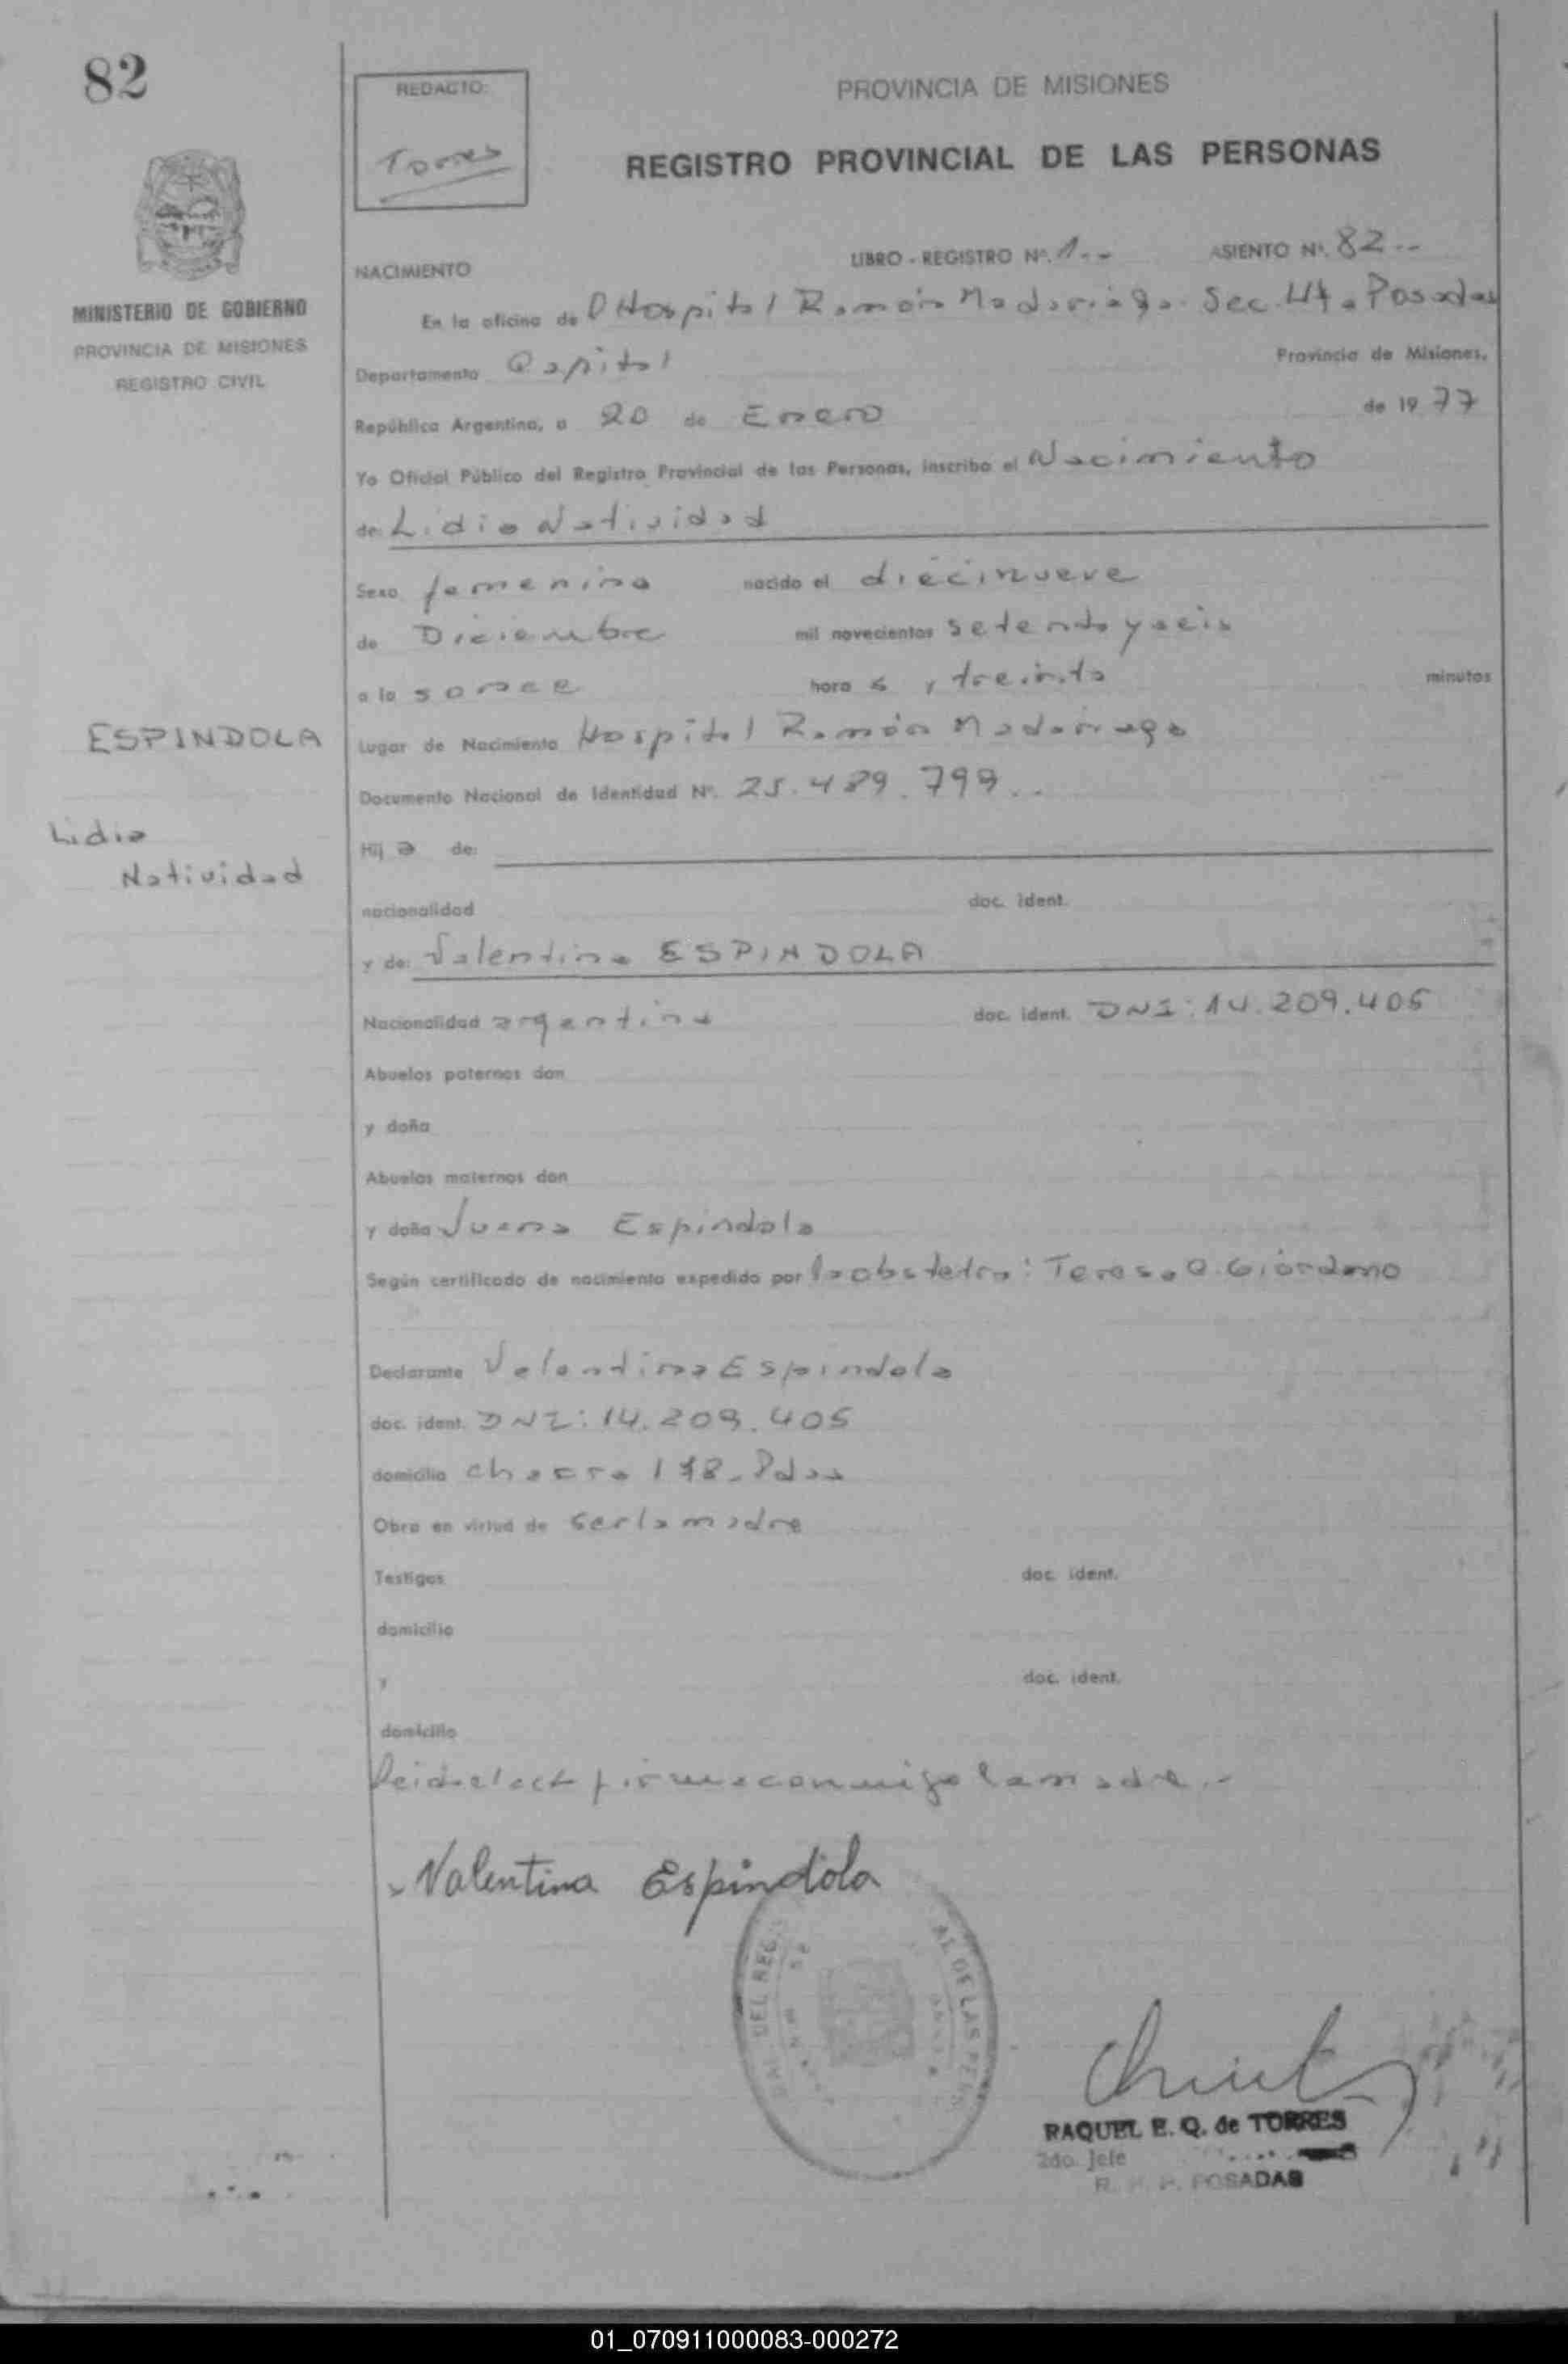 82
REDACTO:
Torres
PROVINCIA DE MISIONES
REGISTRO PROVINCIAL DE LAS PERSONAS
MINISTERIO DE GOBIERNO
PROVINCIA DE MISIONES
REGISTRO CIVIL
NACIMIENTO LIBRO - REGISTRO Nº. 1.. ASIENTO Nº. 82..
En la oficina de Hospital Ramón Madariaga. Sec. 4ta Posadas
Departamento Capital Provincia de Misiones,
República Argentina, a 20 de Enero de 1977
Yo Oficial Público del Registro Provincial de las Personas, inscribo el Nacimiento
de Lidia Natividad
Sexo femenino nacido el diecinueve
de Diciembre mil novecientos setenta y seis
a la s once hora s y treinta minutos
ESPINDOLA
Lidia
Natividad
Lugar de Nacimiento Hospital Ramón Madariaga
Documento Nacional de Identidad Nº. 25.489.799..
Hij a de:
nacionalidad doc. ident.
y de: Valentina ESPINDOLA
Nacionalidad argentina doc. ident. DNI: 14.209.405
Abuelos paternos don
y doña
Abuelos maternos don
y doña Juana Espindola
Según certificado de nacimiento expedido por la obstetra: Teresa Q. Giordano
Declarante Valentina Espindola
doc. ident. DNI: 14.209.405
domicilio chacra 148-Pdas
Obra en virtud de ser la madre
Testigos doc. ident.
domicilio
y doc. ident.
domicilio
Leida el acta firma conmigo la madre.-
Valentina Espindola
DEL REG
AL DE LAS PERS
RAQUEL E. Q. de TORRES
2do. Jefe
R. P. P. POSADAS
01_070911000083-000272